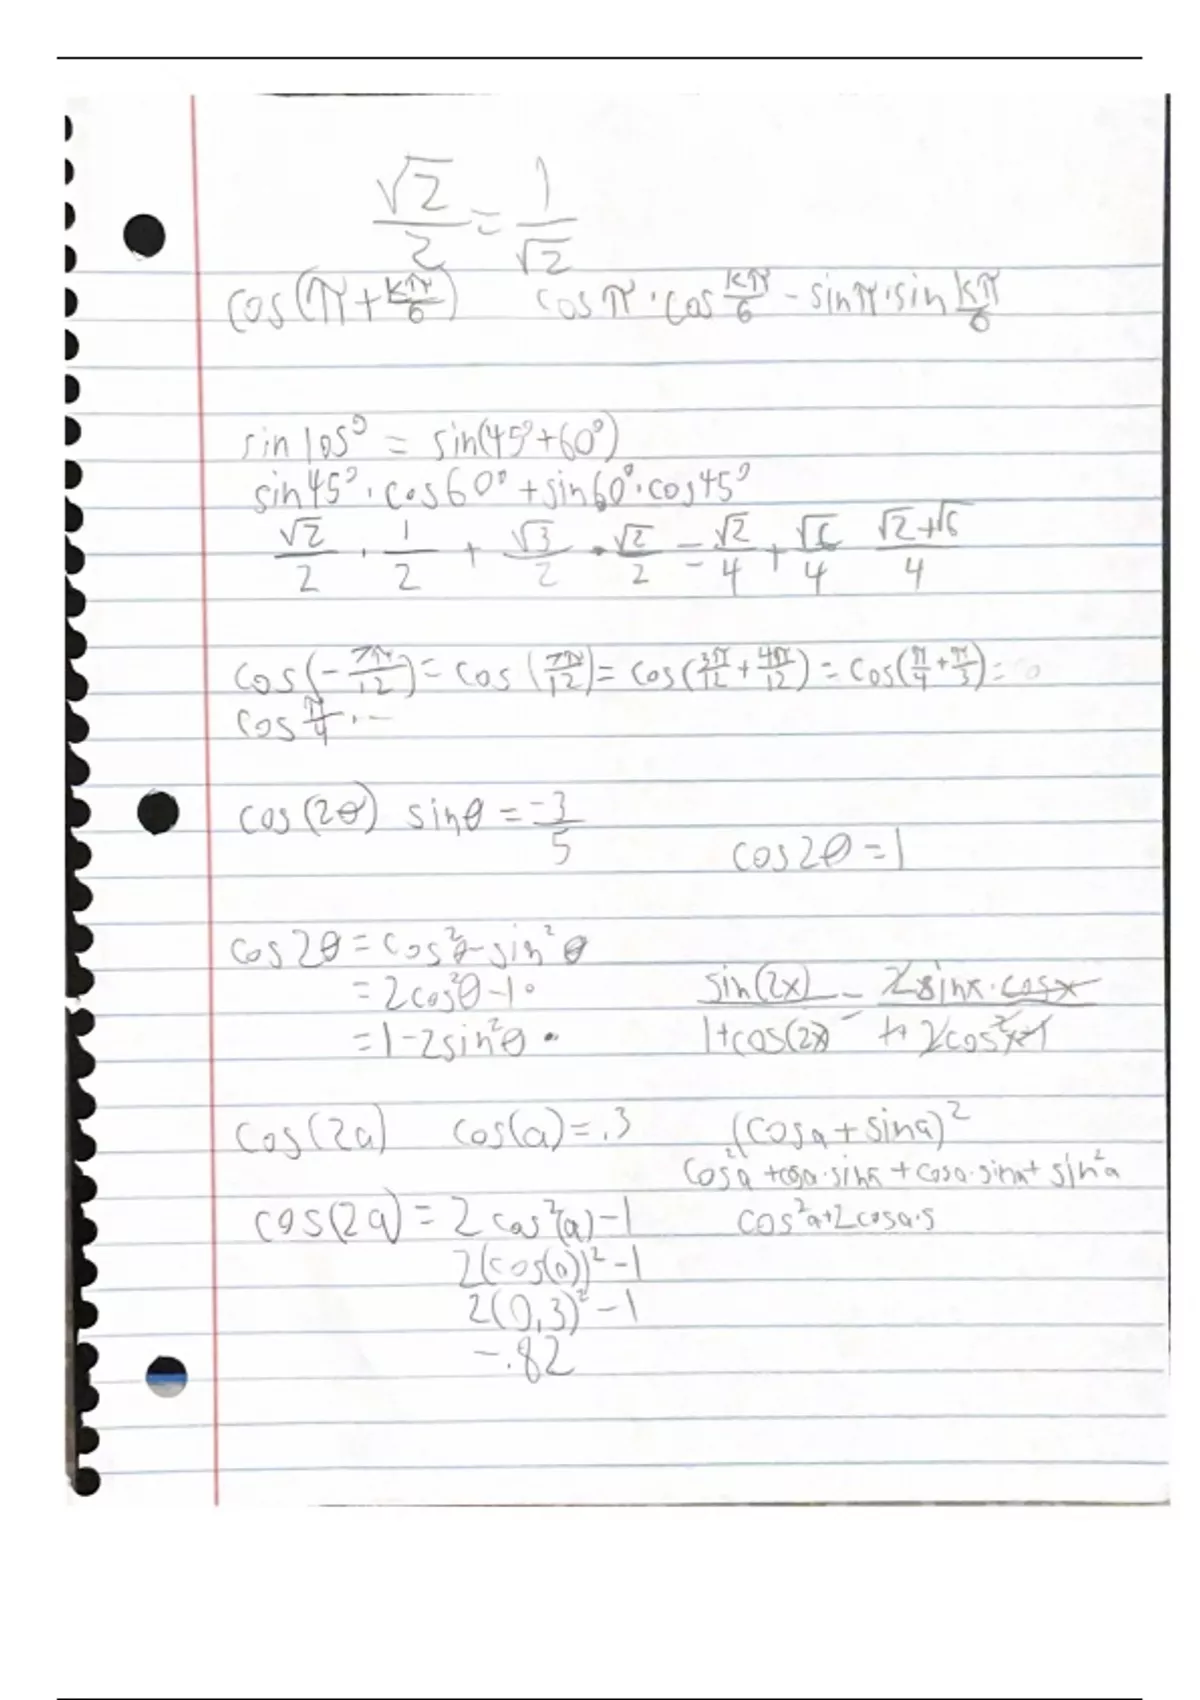 √2/2 = 1/√2
cos(π+kπ/6) cosπ·cos kπ/6 - sinπ·sin kπ/6
sin105° = sin(45°+60°)
sin45°·cos60°+sin60°·cos45°
√2/2 · 1/2 + √3/2 · √2/2 = √2/4 + √6/4 √2+√6/4
cos(-7π/12) = cos(7π/12) = cos(3π/12 + 4π/12) = cos(π/4 + π/3) =
cos π/4 · --
cos(2θ) sinθ = -3/5
cos2θ = 1
cos2θ = cos²θ - sin²θ
= 2cos²θ - 1·
= 1 - 2sin²θ ·
sin(2x)/1+cos(2x) = 2sinx·cosx/1+2cos²x-1
cos(2a) cos(a) = .3
cos(2a) = 2cos²(a) - 1
2(cos(a))² - 1
2(0,3)² - 1
-.82
(cosa + sina)²
cos²a + cosa·sina + cosa·sina + sin²a
cos²a+2cosa·s